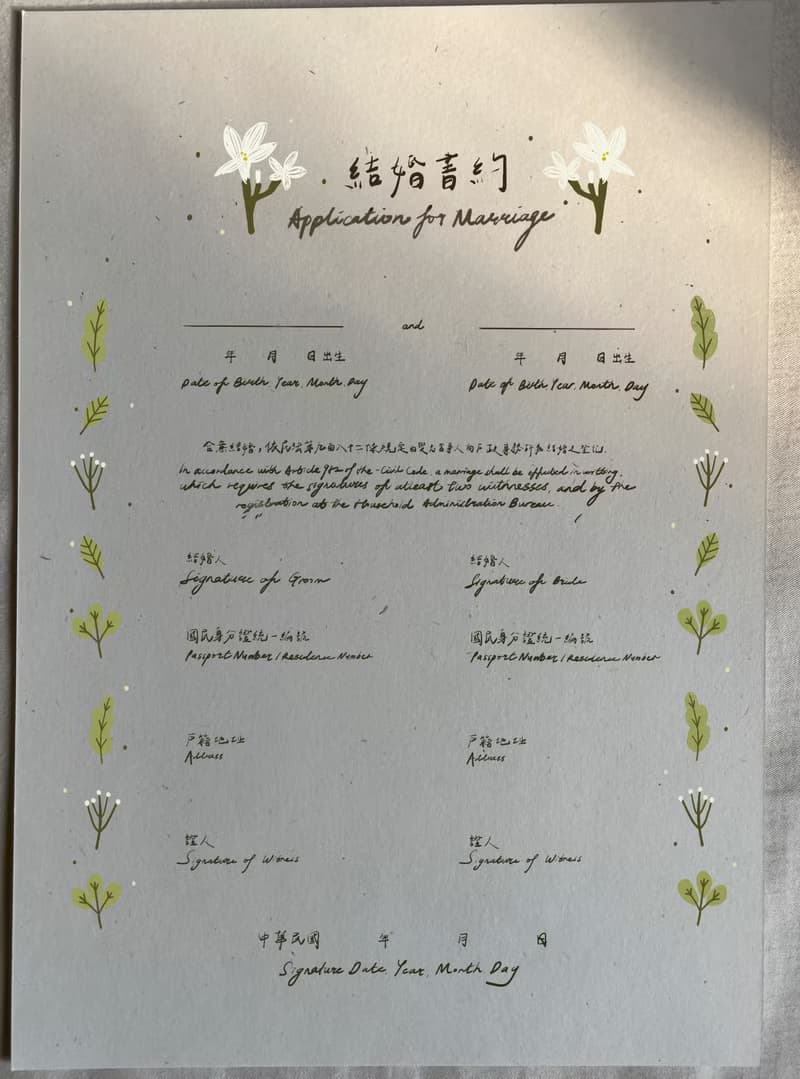 結婚書約
Application for Marriage
and
年 月 日出生 年 月 日出生
Date of Birth, Year, Month, Day Date of Birth, Year, Month, Day
結婚,依民法第九百八十二條規定由雙方當事人向戶政事務所為結婚之登記.
In accordance with Article 982 of the Civil Code, a marriage shall be effected in writting,
which requires the signatures of atleast two witnesses, and by the
registration at the Household Administration Bureau.
結婚人 結婚人
Signature of Groom Signature of Bride
國民身分證統一編號 國民身分證統一編號
Passport Number / Residence Number Passport Number / Residence Number
戶籍地址 戶籍地址
Address Address
證人 證人
Signature of Witness Signature of Witness
中華民國 年 月 日
Signature Date, Year, Month, Day